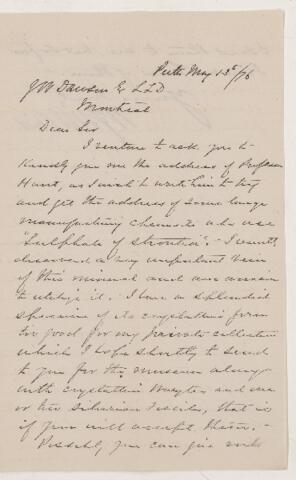 Perth May 13th/76
J W Dawson Esq LLD
Montreal
Dear Sir
I venture to ask you to
kindly give me the address of Professor
Hunt, as I wish to write him to try
and get the address of some large
manufacturing chemists who use
"Sulphate of strontia". I recently
discovered a very important vein
of this mineral and am anxious
to utilize it. I have a splendid
specimen of its crystalline form
too good for my private collection
which I hope shortly to send
to you for the museum along
with crystalline Baryta and one
or two Silurian Fossils, that is
if you will accept them. -
Possibly you can give me